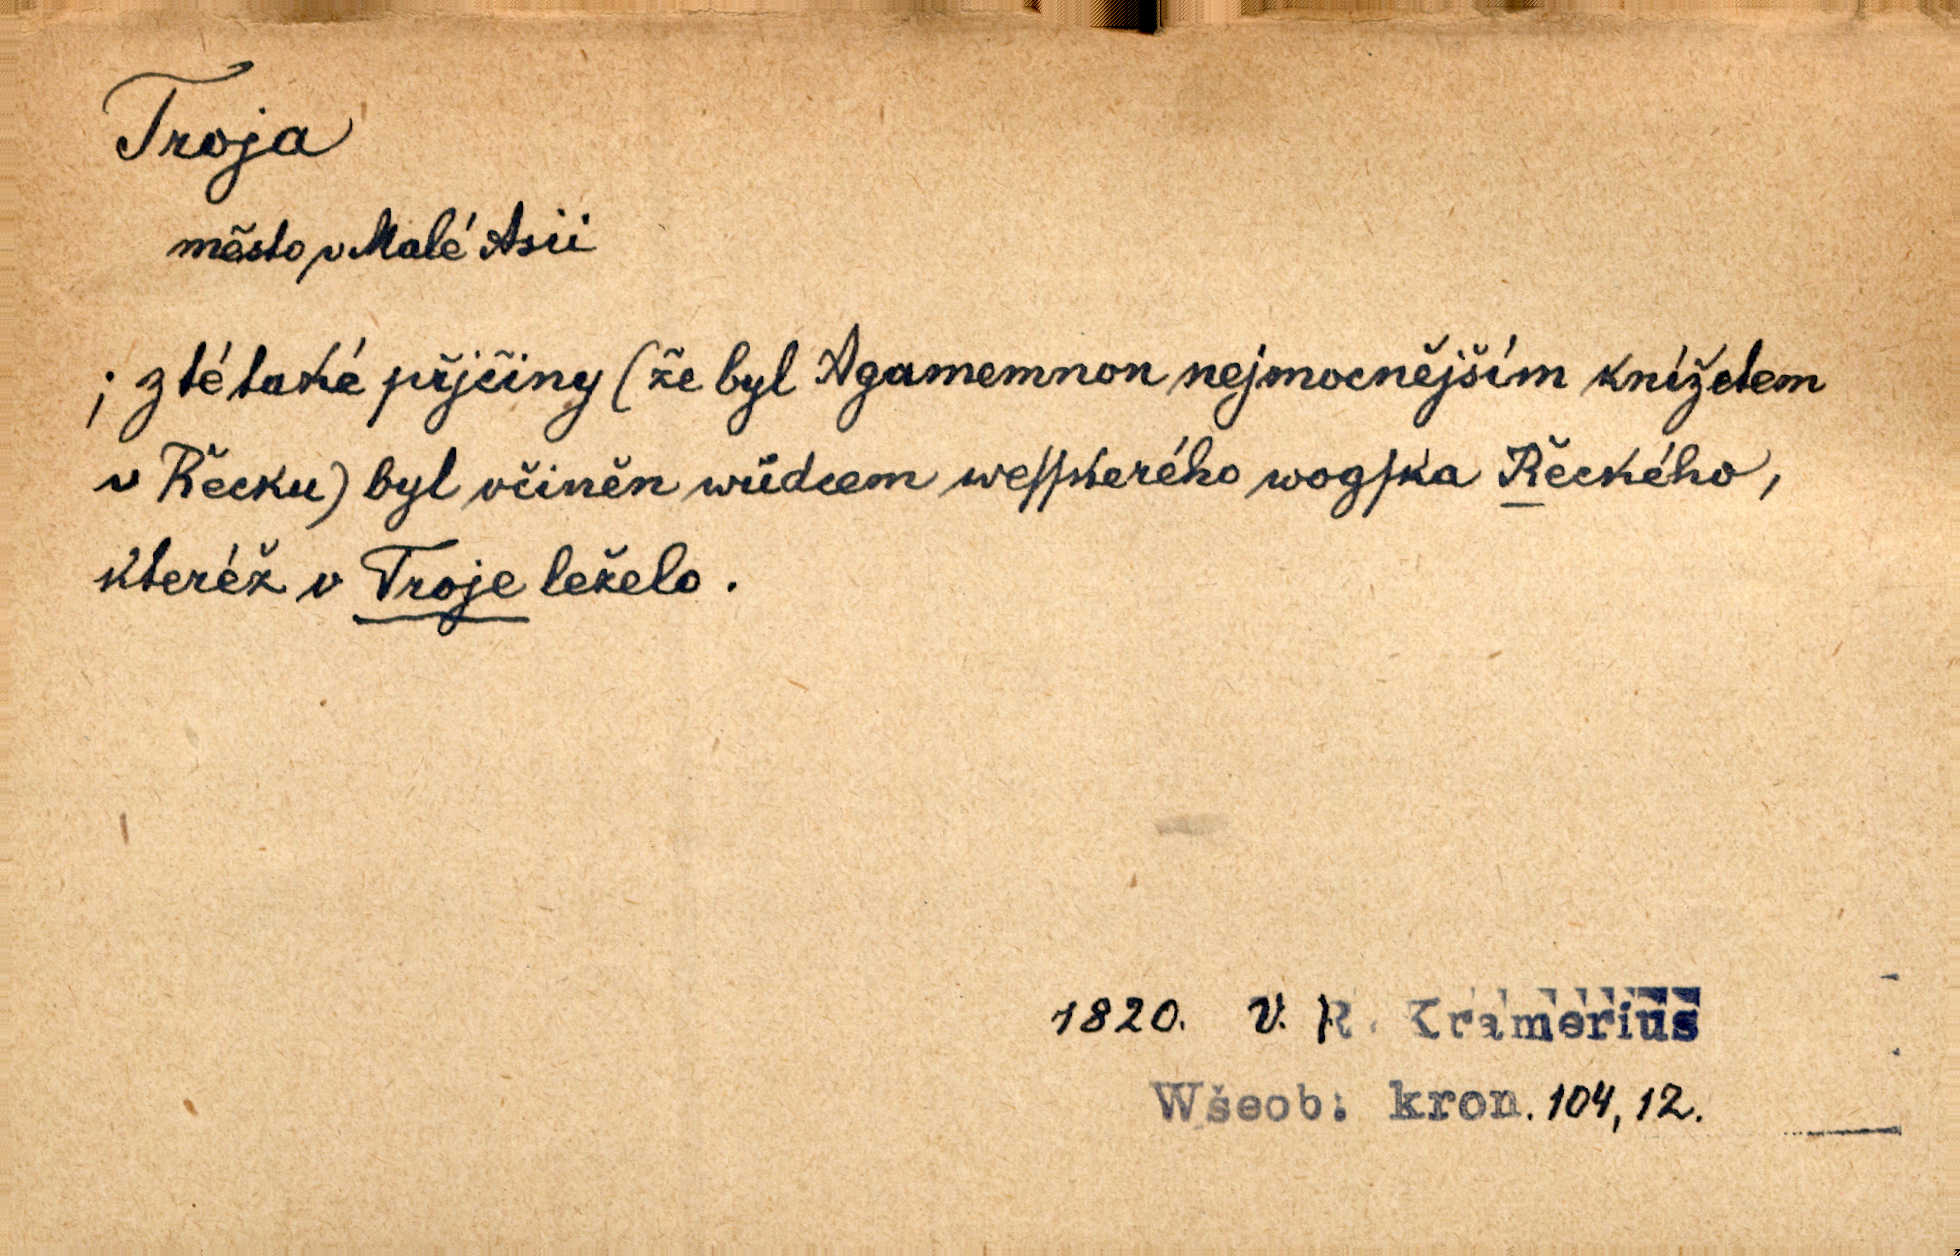 Troja
město v Malé Asii
; z té také přjčiny (že byl Agamemnon nejmocnějším knížetem
v Řecku) byl včiněn wůdcem weſſkerého wogſka Řeckého,
kteréž v Troje leželo.
1820. V. R. Kramerius
Wšeob. kron. 104, 12.